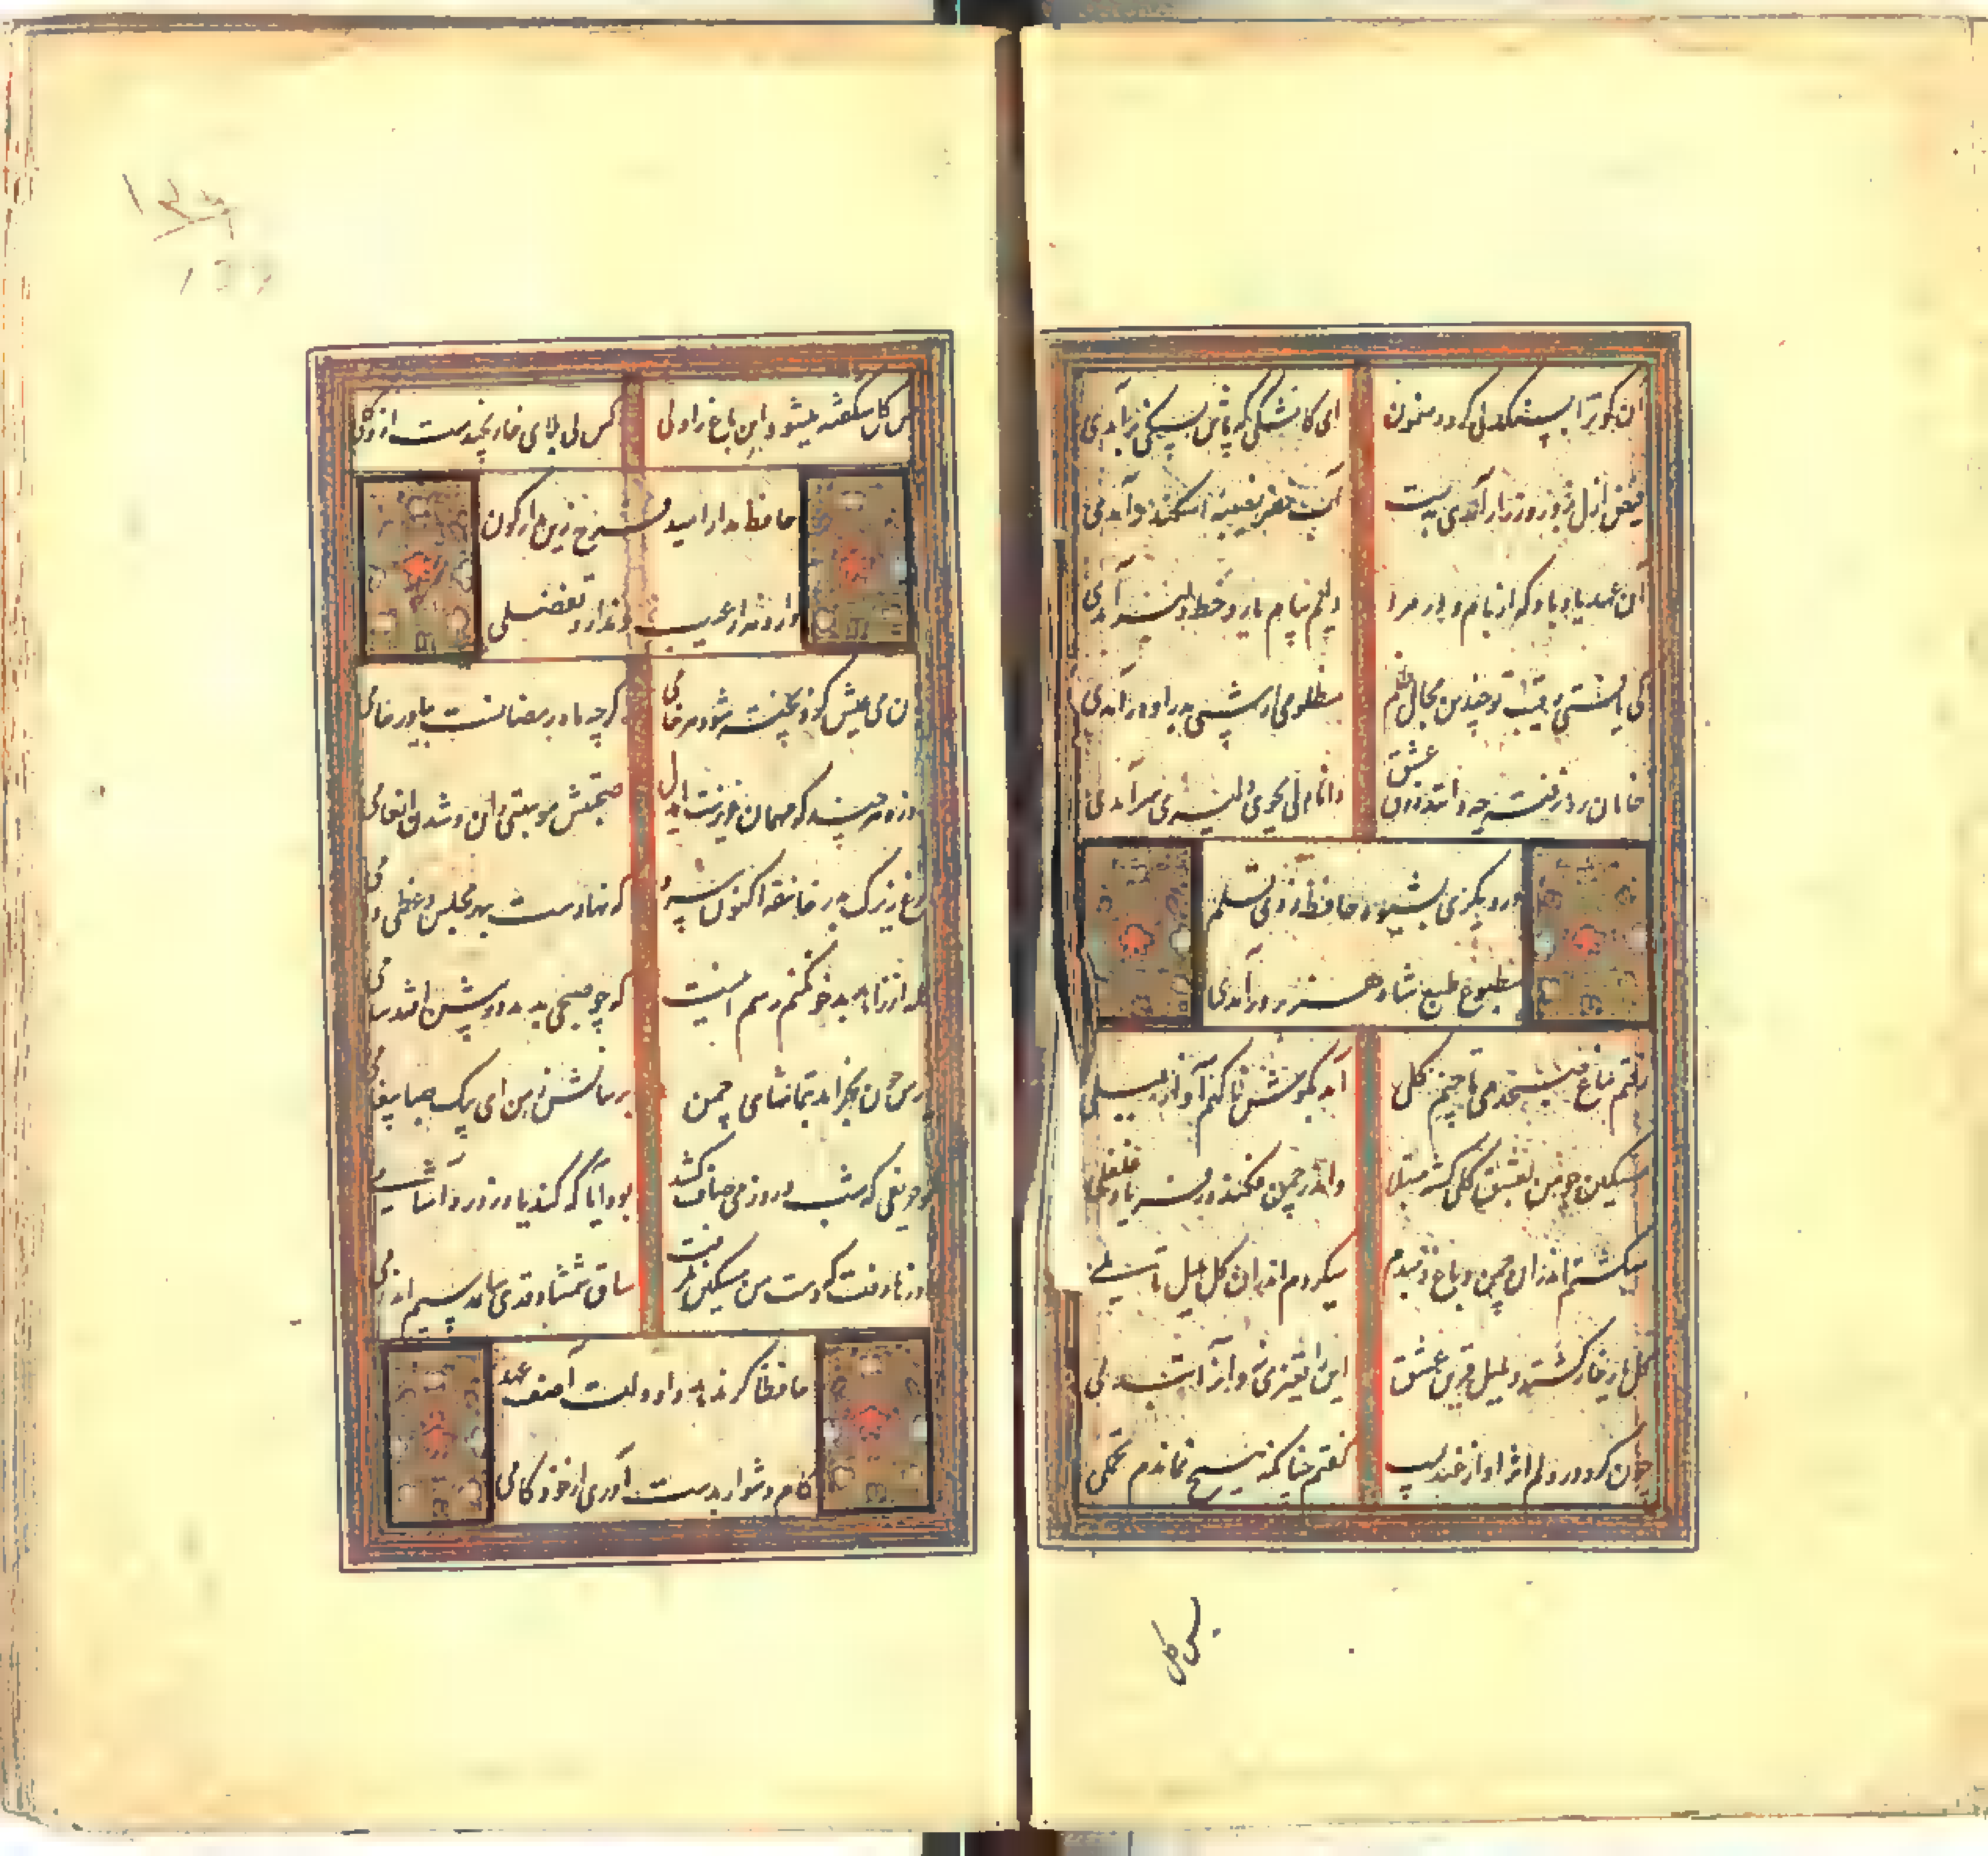 آن کو ترا بسنگدلی کرد رهنمون
ای کاشکی که پاش بسنگی برآمدی
فیض ازل بزور و زر ار آمدی بدست
آب خضر نصیبه اسکندر آمدی
آن عهد یاد باد که از بام و در مرا
دایم پیام یار و خط دلبر آمدی
کی یافتی رقیب تو چندین مجال ظلم
مظلومی ار شبی بدر داور آمدی
خامان ره نرفته چه دانند ذوق عشق
دریا دلی بجوی دلیری سرآمدی
ور دیگری بشیوه حافظ زدی رقم
مطبوع طبع شاه هنرپرور آمدی
رفتم بباغ صبحدمی تا چنم گلی
آمد بگوش ناگهم آواز بلبلی
مسکین چو من بعشق گلی گشته مبتلا
واندر چمن فکنده ز فریاد غلغلی
میگشتم اندران چمن و باغ دمبدم
میکردم اندران گل و بلبل تاملی
گل یار خار گشته و بلبل قرین عشق
این را تغیری نه و آنرا تبدلی
چون کرد در دلم اثر آواز عندلیب
گشتم چنانکه هیچ نماندم تحملی
بس گل
بس گل شکفته میشود این باغ را ولی
کس بی بلای خار نچیدست ازو گلی
حافظ مدار امید فرح زین مدار کون
دارد هزار عیب و ندارد تفضلی
زان می عشق کزو پخته شود هر خامی
گر چه ماه رمضانست بیاور جامی
روزه هر چند که مهمان عزیزست ای دل
صحبتش موهبتی دان و شدن انعامی
مرغ زیرک بدر خانقه اکنون نپرد
که نهادست بهر مجلس وعظی دامی
گله از زاهد بدخو نکنم رسم اینست
که چو صبحی بدمد در پیش افتد شامی
یار من چون بخرامد بتماشای چمن
برسانش ز من ای پیک صبا پیغامی
کو حریفی که شب و روز می صاف کشد
بود آیا که کند یاد ز درد آشامی
روزها رفت که دست من مسکین نگرفت
ساق شمشاد قدی ساعد سیم اندامی
حافظا گر ندهد داد دلت آصف عهد
کام دشوار بدست آوری از خودکامی